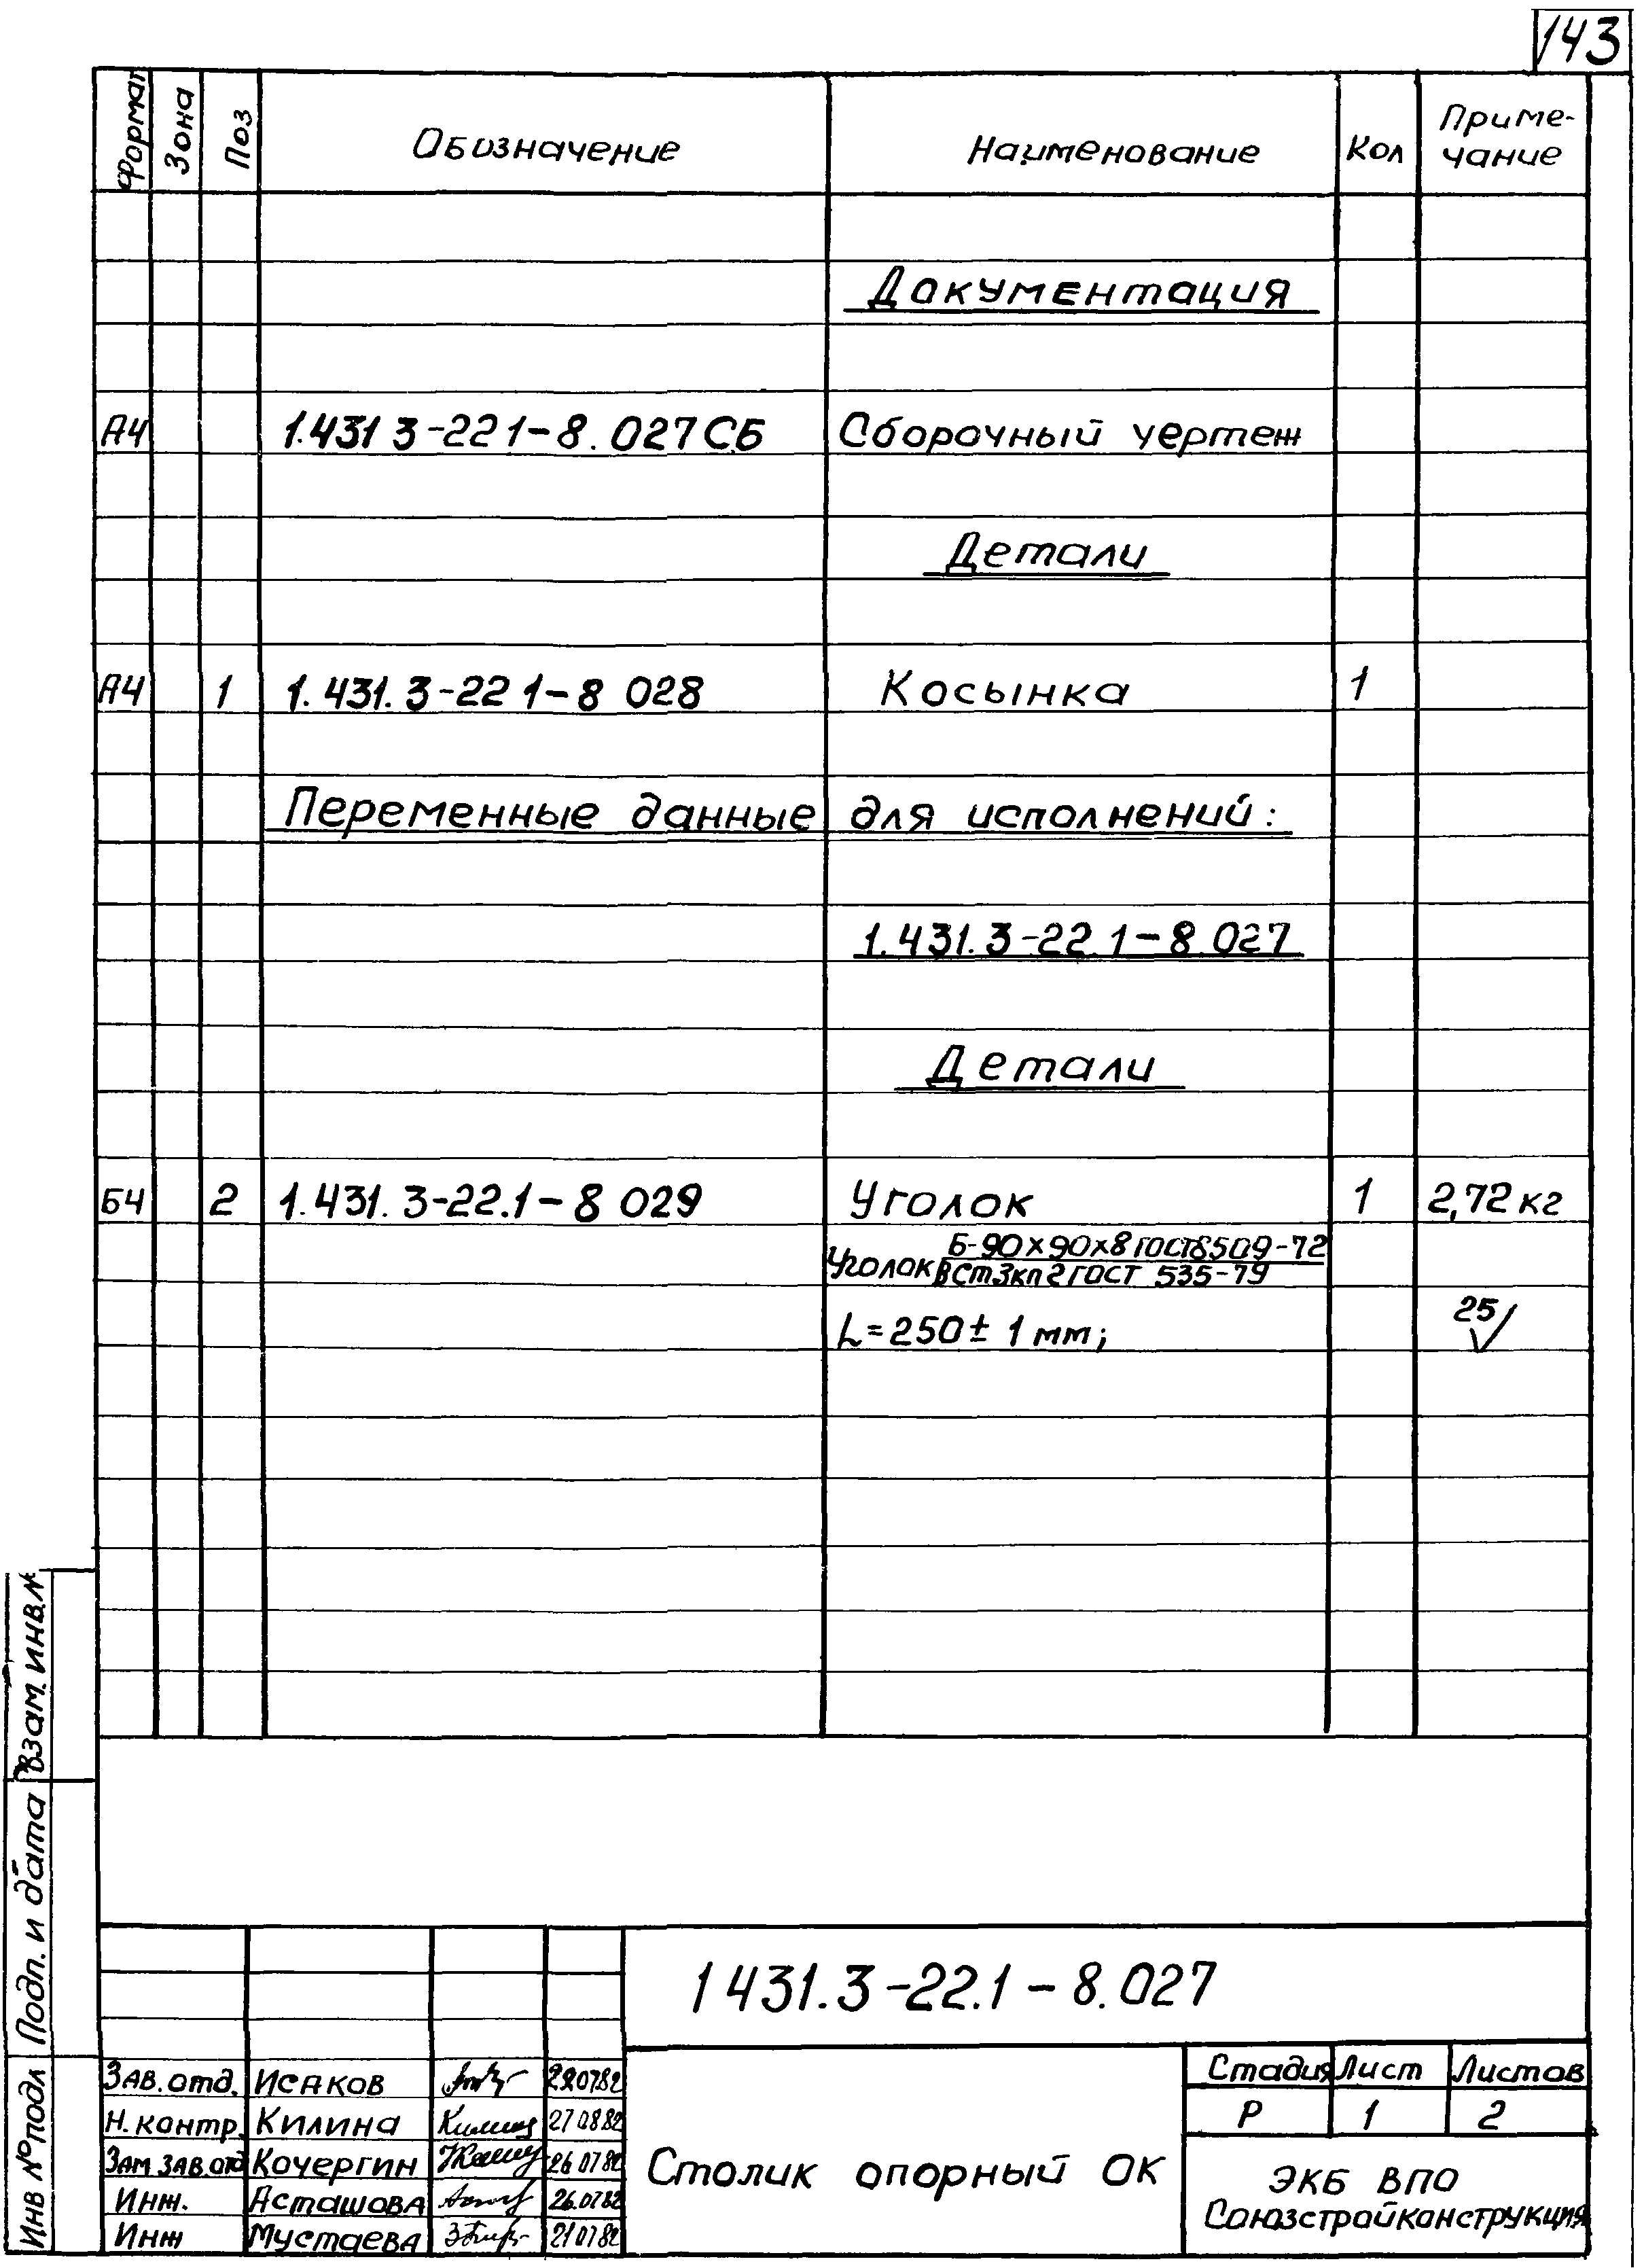 143
Формат Зона Поз Обозначение Наименование Кол Приме-
чание
Документация
А4 1.431 3-22 1-8. 027СБ Сборочный чертеж
Детали
А4 1 1. 431. 3-22 1-8 028 Косынка 1
Переменные данные для исполнений:
1.431.3-22.1-8.027
Детали
Б4 2 1.431. 3-22.1-8 029 Уголок 1 2,72 кг
Б-90х90х8 ГОСТ 8509-72
Уголок ВСт3кп2 ГОСТ 535-79
25
L=250± 1 мм;
Взам. инв. №
Подп. и дата
Инв № подл
1 431.3-22.1-8.027
Зав. отд. Исаков 22.07.82
Н. контр. Килина 27 08 82
Зам зав. отд Кочергин 26 07 82
Инж. Асташова 26.07.82
Инж Мустаева 21 07 82
Столик опорный ОК
Стадия Лист Листов
Р 1 2
ЭКБ ВПО
Союзстройконструкция